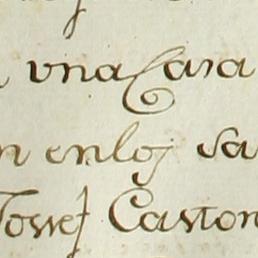 vna Casa
en los sa
Josef Caston